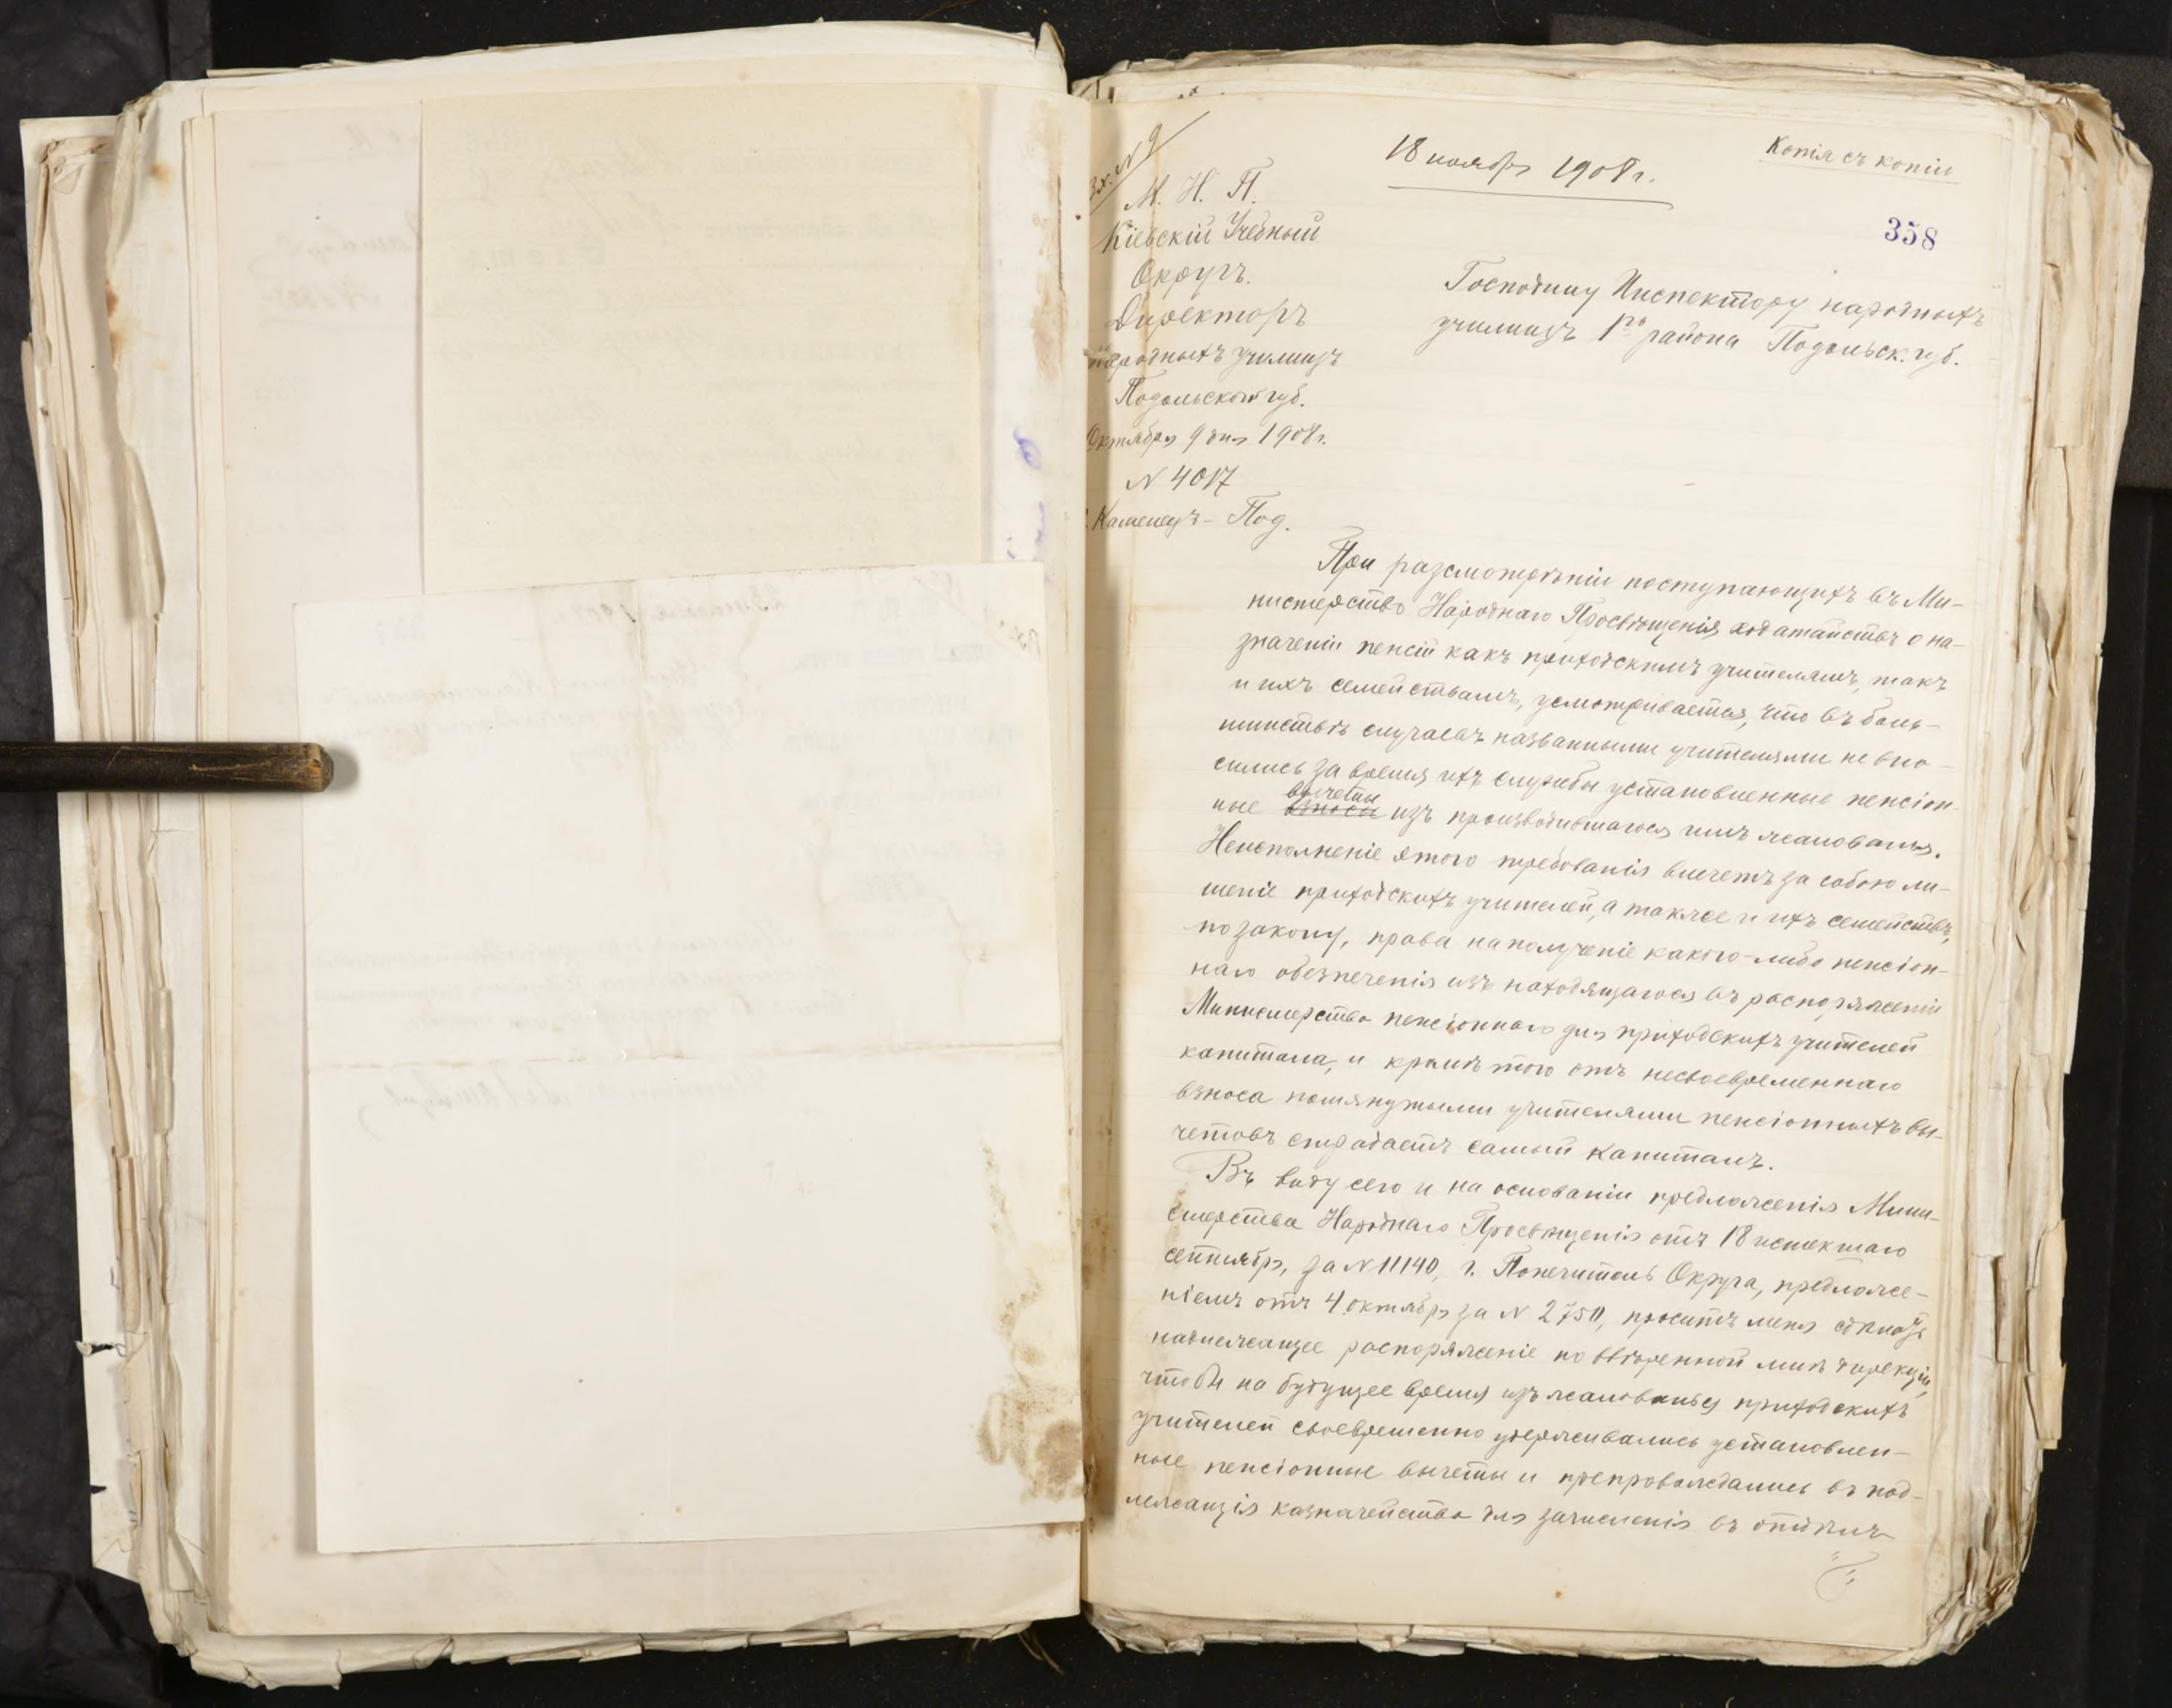 Вх. № 9
18 ноября 1908 г.
Копія съ копіи
358
М. Н. П.
Кіевскій Учебный
Округъ.
Директоръ
народныхъ училищъ
Подольской губ.
Октября 9 дня 1908 г.
№ 4017
г. Каменецъ-Под.
Господину Инспектору народныхъ
училищъ 1го района Подольск. губ.
При разсмотрѣніи поступающихъ въ Ми-
нистерство Народнаго Просвѣщенія ходатайствъ о на-
значеніи пенсій какъ приходскимъ учителямъ, такъ
и ихъ семействамъ, усматривается, что въ боль-
шинствѣ случаевъ названными учителями не вно-
сились за время ихъ службы установленные пенсіон-
ные взносы вычеты изъ производившагося имъ жалованья.
Неисполненіе этого требованія влечетъ за собою ли-
шеніе приходскихъ учителей, а также и ихъ семействъ,
по закону, права на полученіе какого-либо пенсіон-
наго обезпеченія изъ находящагося въ распоряженіи
Министерства пенсіоннаго для приходскихъ учителей
капитала, и кромѣ того отъ несвоевременнаго
взноса помянутыми учителями пенсіонныхъ вы-
четовъ страдаетъ самый капиталъ.
Въ виду сего и на основаніи предложенія Мини-
стерства Народнаго Просвѣщенія отъ 18 истекшаго
сентября, за № 11140, г. Попечитель Округа, предложе-
ніемъ отъ 4 октября за № 2750, проситъ меня сдѣлать
надлежащее распоряженіе по ввѣренной мнѣ дирекціи,
чтобы на будущее время изъ жалованья приходскихъ
учителей своевременно удерживались установлен-
ные пенсіонные вычеты и препровождались въ под-
лежащія казначейства для зачисленія въ